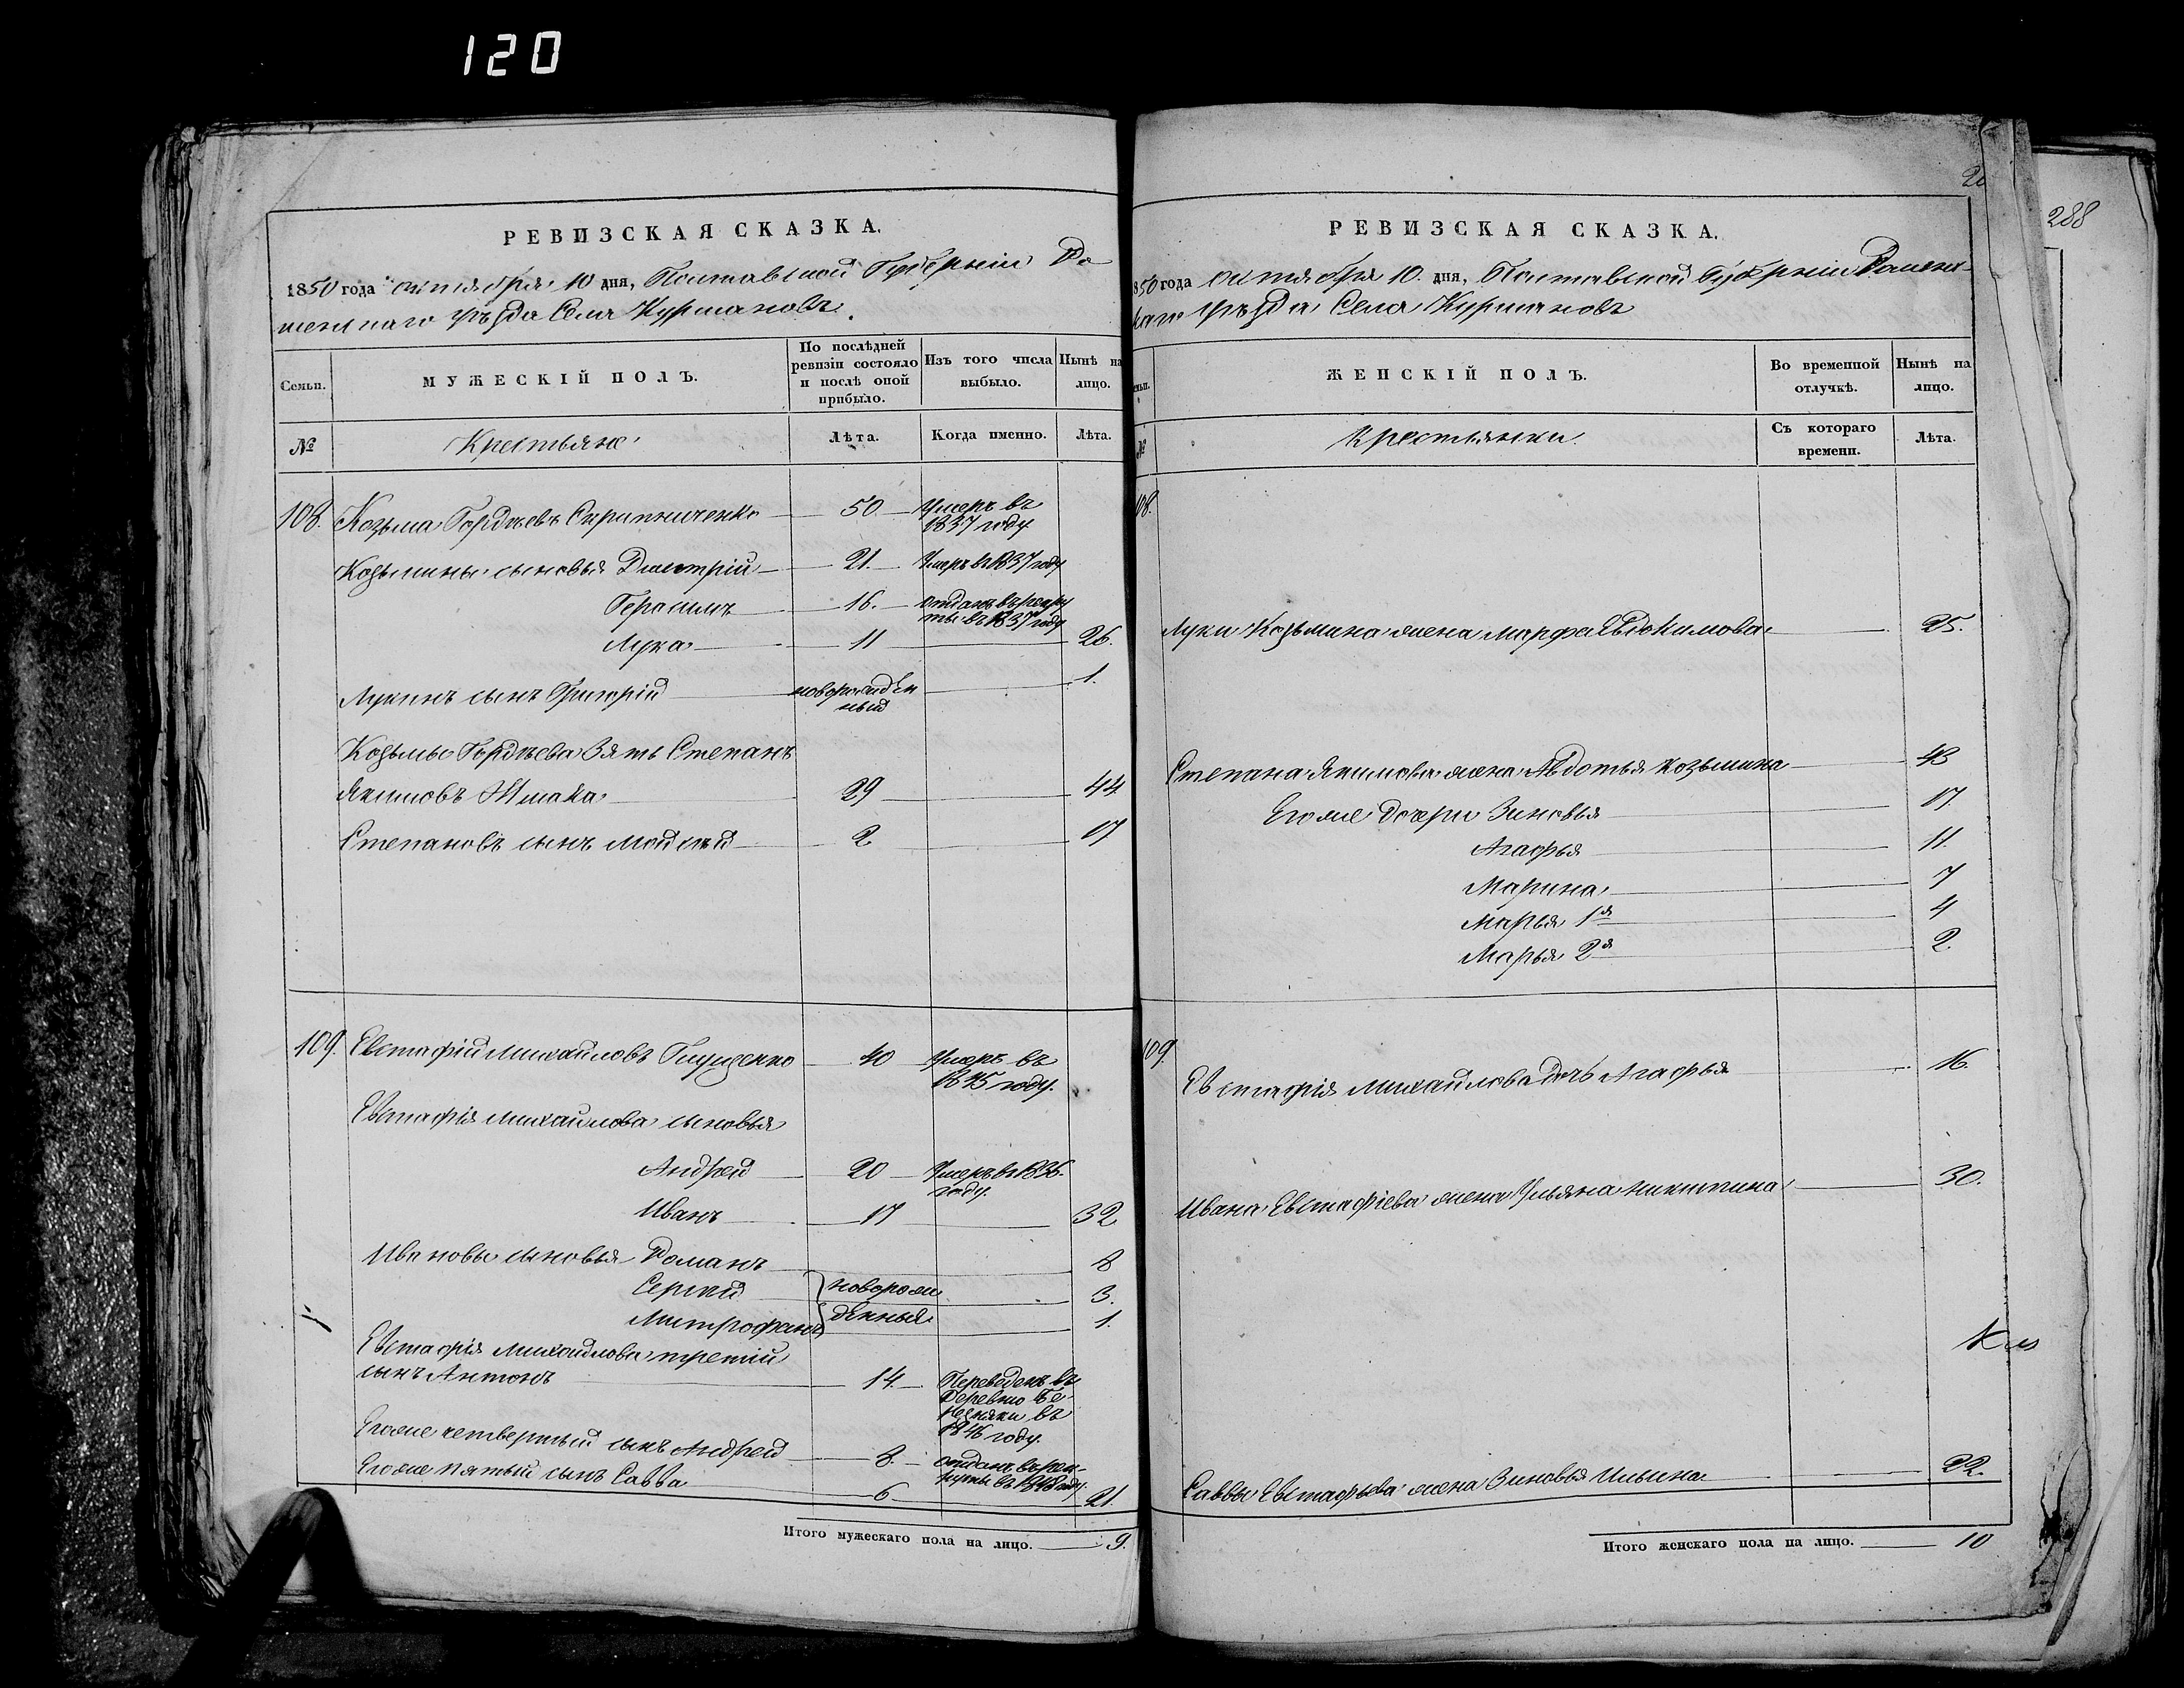 120
288
РЕВИЗСКАЯ СКАЗКА.
1850 года октября 10 дня, Полтавской Губерніи Ро-
менскаго уѣзда Села Курмановъ.
Семьи.
МУЖЕСКІЙ ПОЛЪ.
По послѣдней ревизіи состояло и послѣ оной прибыло.
Изъ того числа выбыло.
Нынѣ на лицо.
№
Крестьяне
Лѣта.
Когда именно.
Лѣта.
108. Козьма Гордѣевъ Скрипниченко 50 умеръ въ 1837 году
Козьмины сыновья Дмитрій 21. Умеръ въ 1837 году
Герасимъ 16. отданъ въ рекруты въ 1837 году
Лука 11 26.
Лукинъ сынъ Григорій новорожденный 1.
Козьмы Гордѣева Зять Степанъ
Якимовъ Жмака 29 44
Степановъ сынъ Мойсей 2 17
109. Евстафій Михайловъ Гищенко 40 умеръ въ 1845 году.
Евстафія Михайлова сыновья
Андрей 20 Умеръ въ 1836 году.
Иванъ 17 32
Ивановы сыновья Романъ 8
Сергѣй новорож 3.
Митрофанъ денныя 1.
Евстафія Михайлова третій
сынъ Антонъ 14. Переведенъ въ Деревню въ 1846 году.
Егоже четвертый сынъ Андрей 8. отданъ въ рекруты въ 1848 году.
Егоже пятый сынъ Савва 6 21.
Итого мужескаго пола на лицо. 9.
РЕВИЗСКАЯ СКАЗКА.
1850 года октября 10. дня, Полтавской Губерніи Роменс-
каго Уѣзда Села Курмановъ
ЖЕНСКІЙ ПОЛЪ.
Во временной отлучкѣ.
Нынѣ на лицо.
№
Крестьянки.
Съ котораго времени.
Лѣта.
108.
Луки Козьмина жена Марфа Евдокимова 25.
Степана Якимова жена Авдотья Козьмина 43
Егоже дочери Зиновья 17.
Агафья 11.
Марина 7
Марья 1я 4
Марья 2я 2.
109
Евстафія Михайлова дочь Агафья 16.
Ивана Евстафіева жена Ульяна Никитина 30.
Саввы Евстафьева жена Зиновья Ильина 22.
Итого женскаго пола на лицо. 10